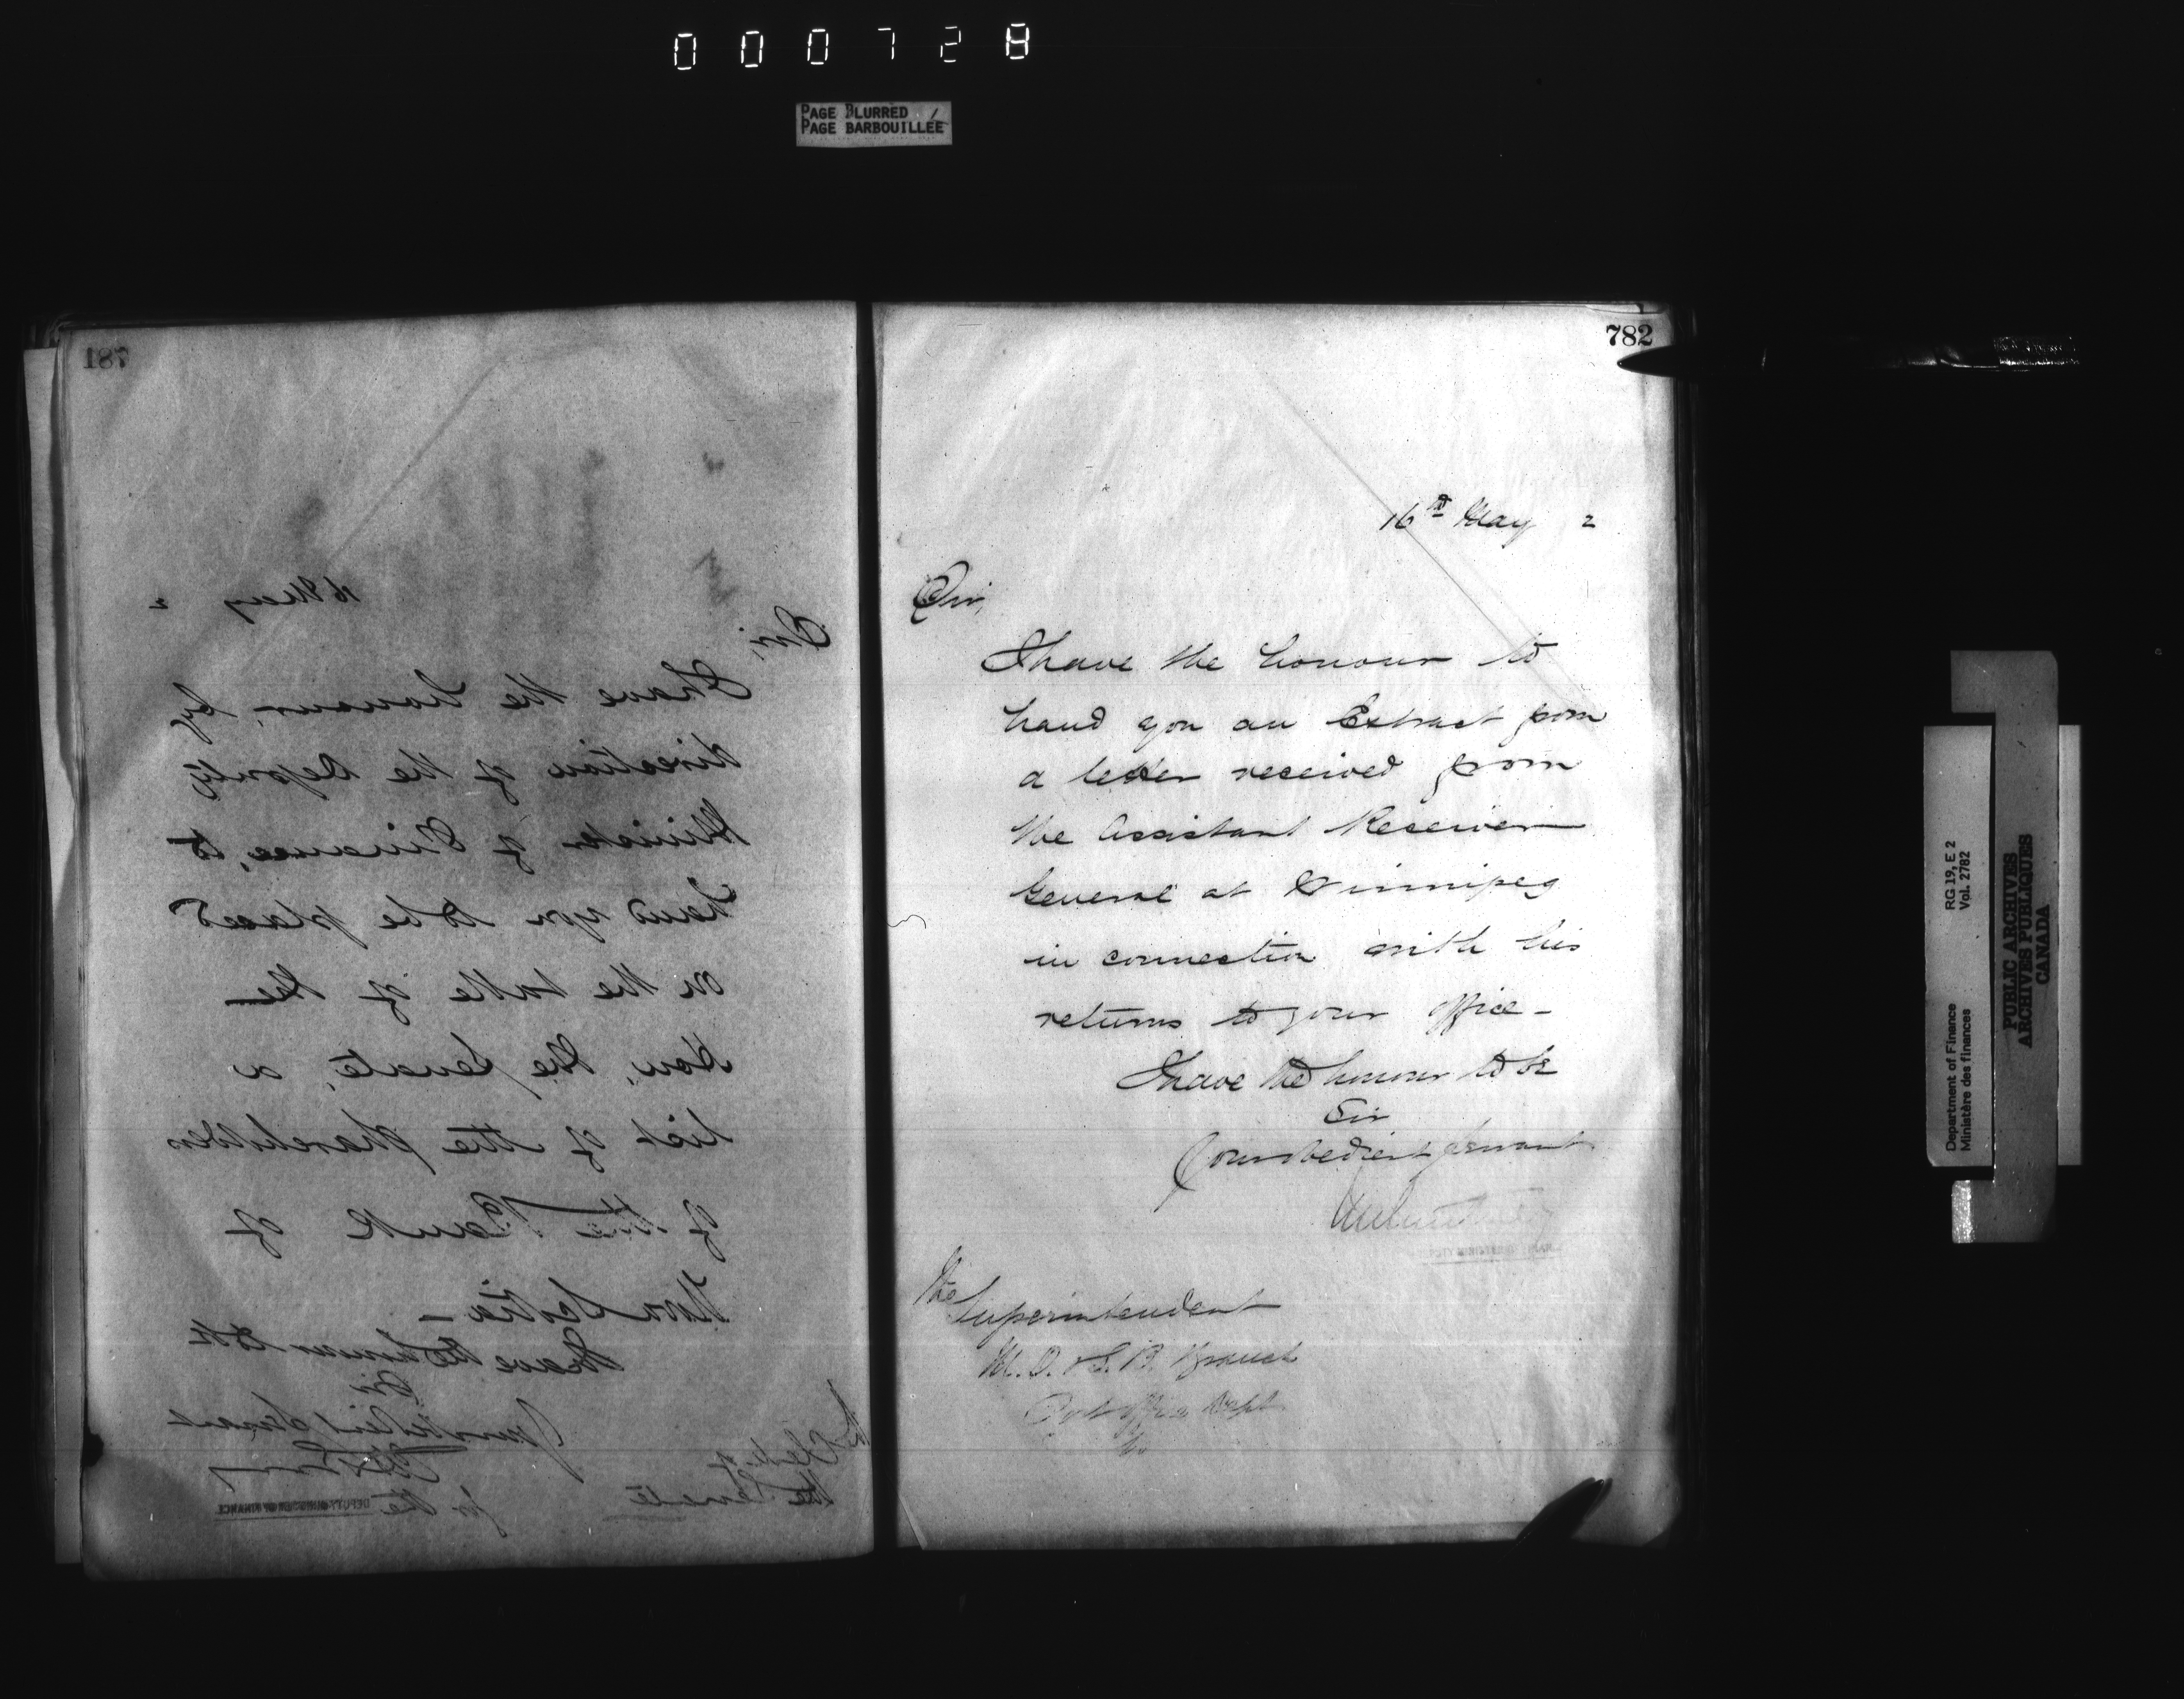 000728
PAGE BLURRED
PAGE BARBOUILLÉE
187
16 May 2
Sir,
I have the honour, by
direction of the Deputy
Minister of Finance, to
hand you to be placed
on the table of the
Hon. the Senate, a
list of the shareholders
of the Bank of
Nova Scotia –
I have the honour to be
Sir
Your obedient servant
for the
DEPUTY MINISTER OF FINANCE
The Clerk of
the Senate
782
16th May 2
Sir,
I have the honour to
hand you an Extract from
a letter received from
the Assistant Receiver
General at Winnipeg
in connection with his
returns to your office –
I have the honour to be
Sir
Your obedient servant
DEPUTY MINISTER OF FINANCE
The
Superintendent
M. O. & S. B. Branch
Post Office Dept
Department of Finance RG 19, E 2
Ministère des finances Vol. 2782
PUBLIC ARCHIVES
ARCHIVES PUBLIQUES
CANADA